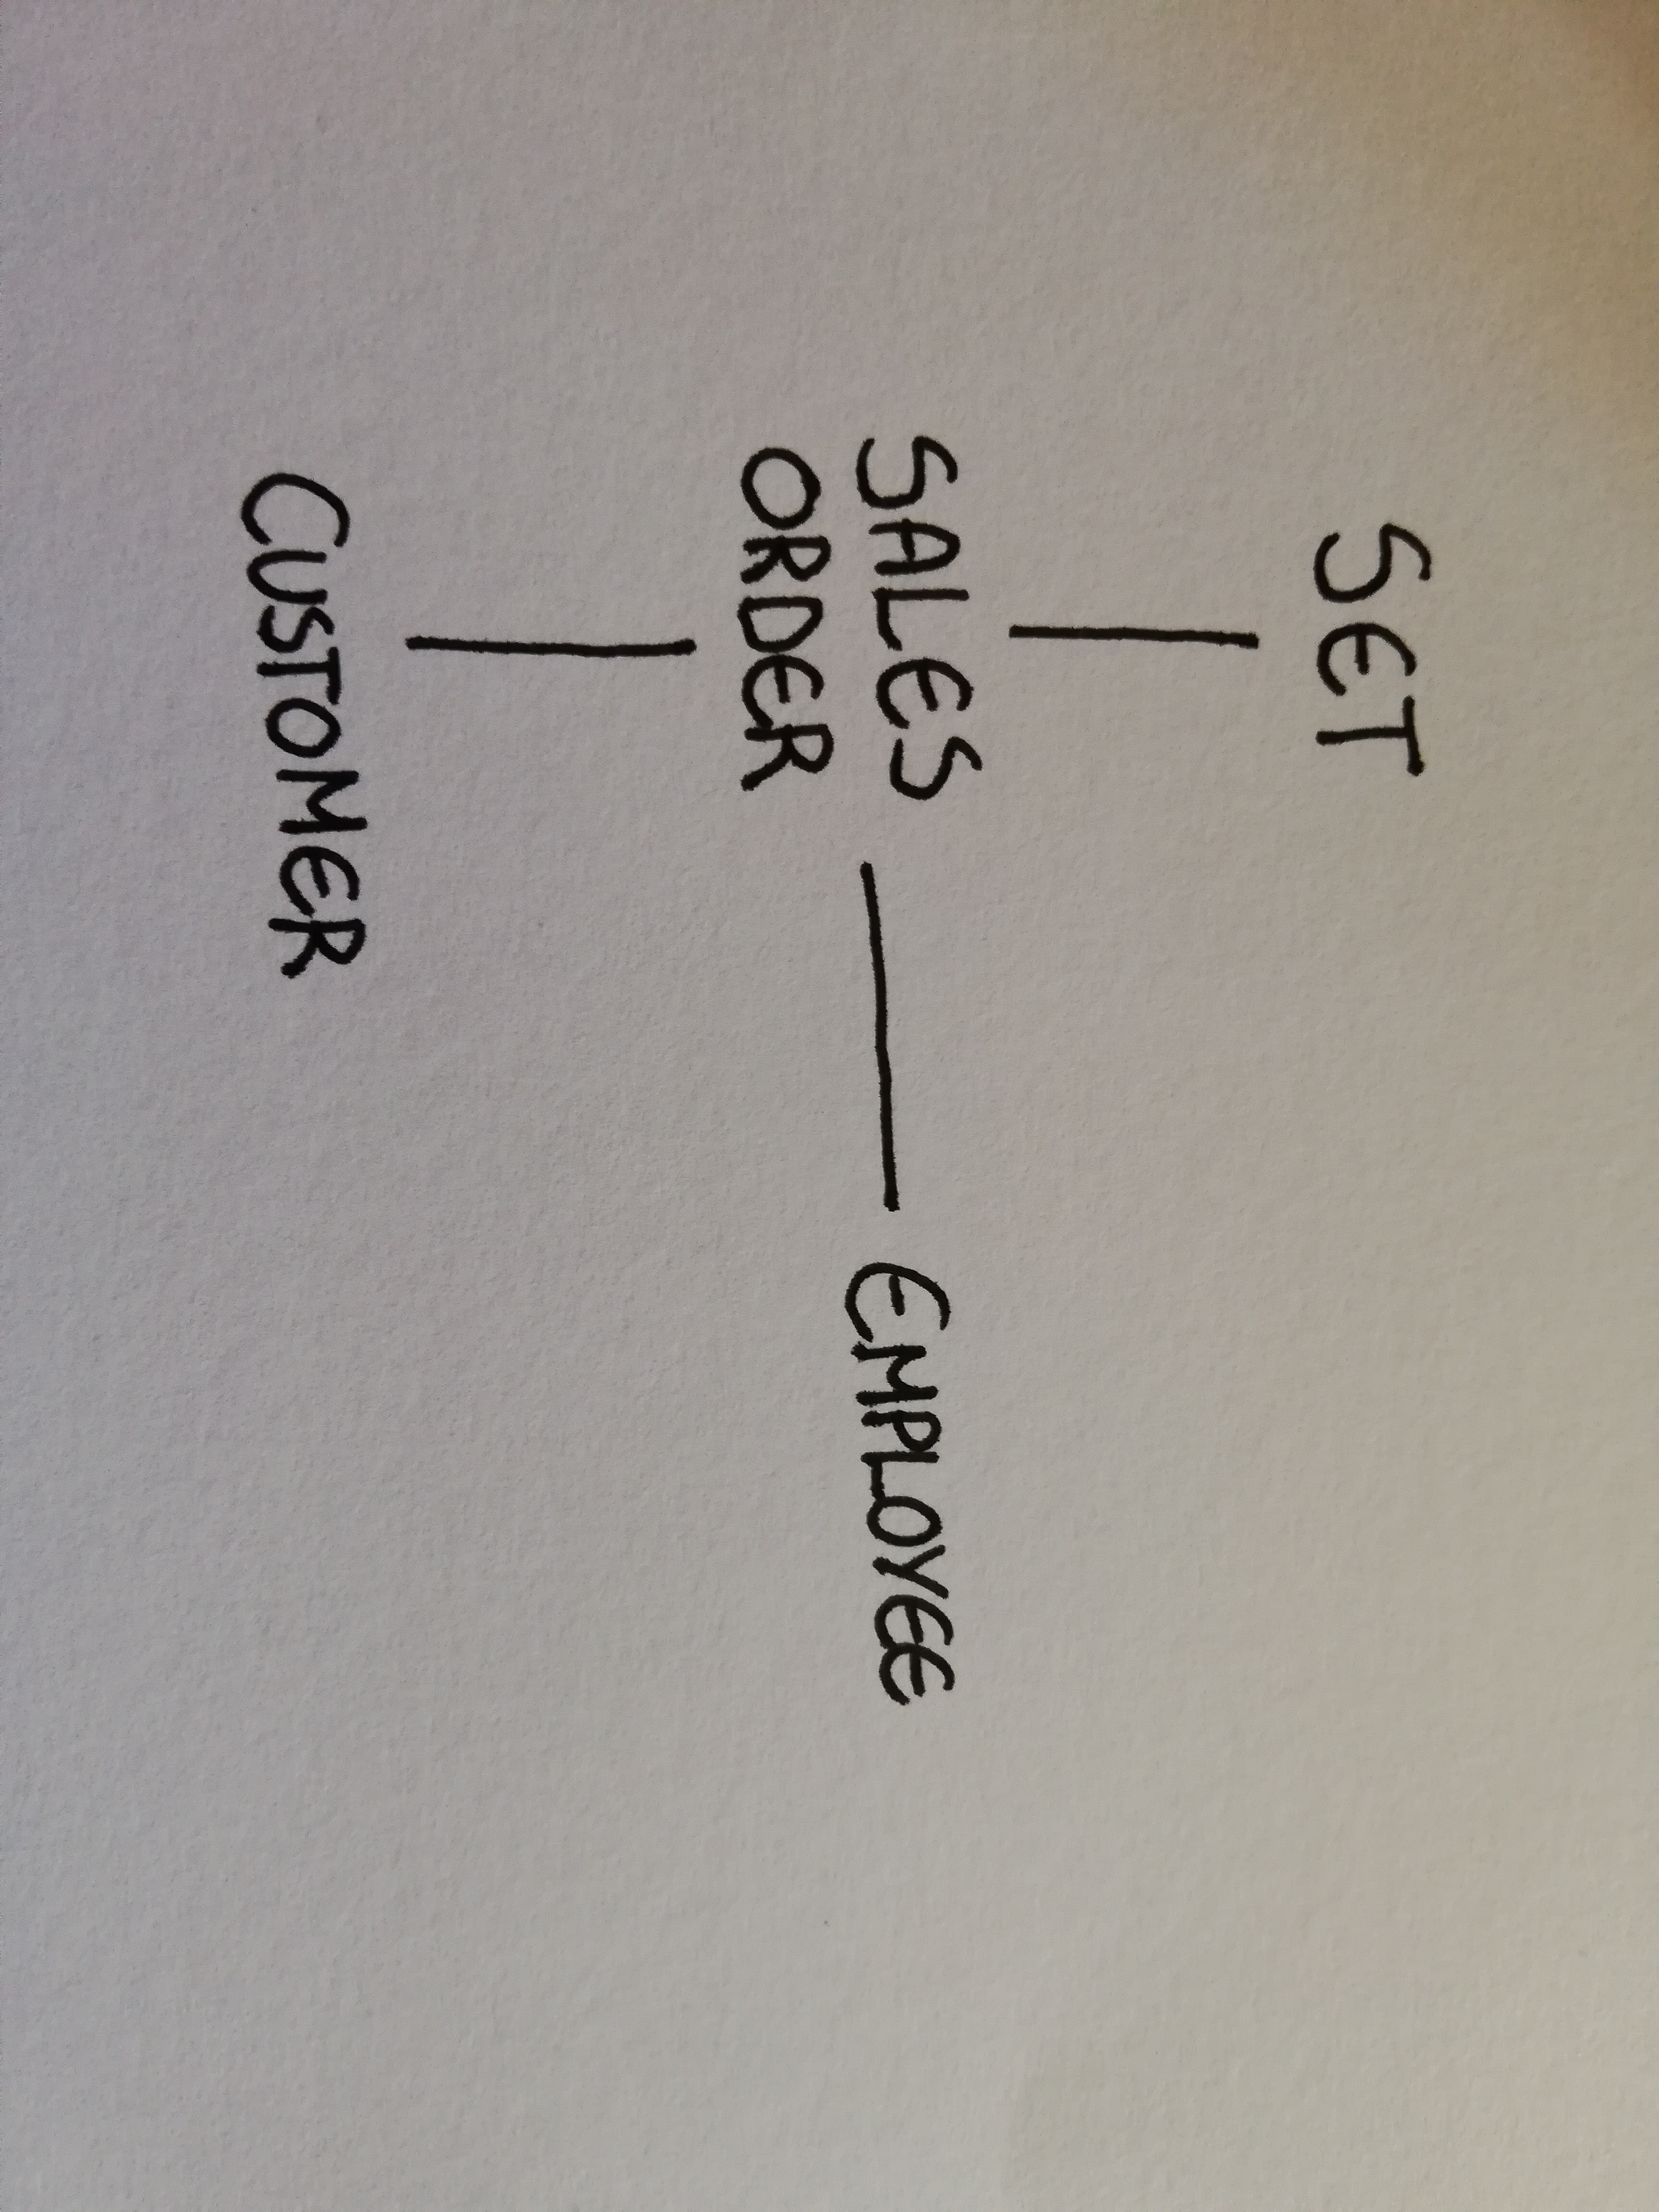 SET
SALES
ORDER
EMPLOYEE
CUSTOMER